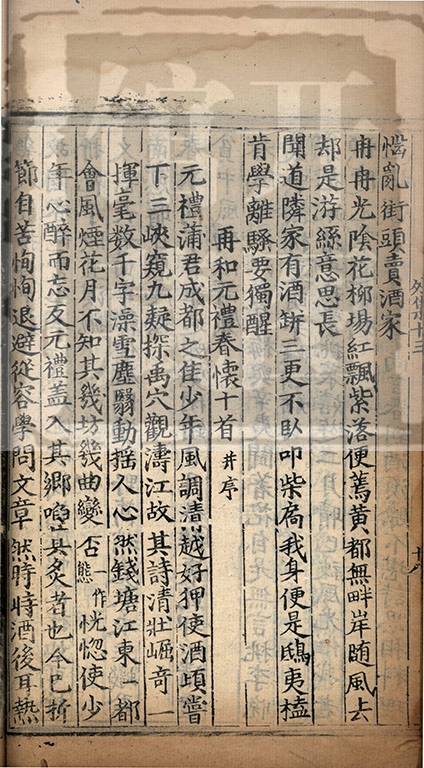 惱亂街頭賣酒家
冉冉光陰花柳場紅飄紫落便蔫黃都無畔岸随風去
却是游絲意思長
聞道隣家有酒缾三更不臥叩柴扃我身便是鴟夷榼
肯學離騷要獨醒
再和元禮春懷十首并序
元禮蒲君成都之佳少年風調清越好押使酒頃嘗
下三峽窺九疑探禹穴觀濤江故其詩清壯崛奇一
揮毫數千字澡雪塵翳動揺人心然錢塘江東一都
會風煙花月不知其幾坊幾曲變否一作態恍惚使少
年心醉而忘友元禮蓋入其鄉啗其炙者也今已折
節自苦恂恂退避從容學問文章然時時酒後耳熱
外集十三
十八